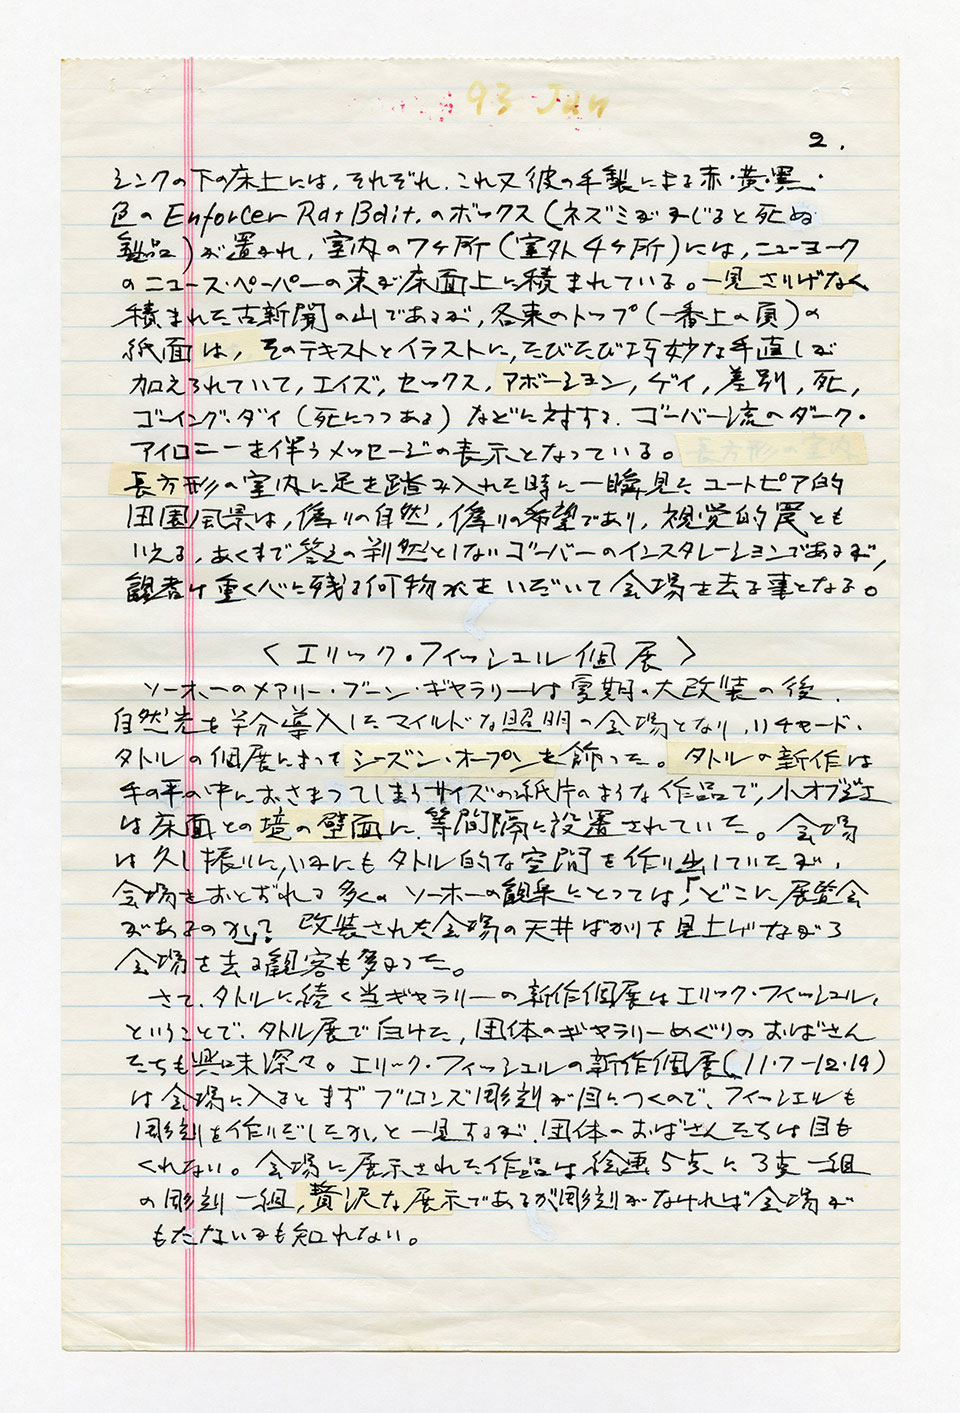 93 Jun
2.
シンクの下の床上には、それぞれ、これ又彼の手製による赤・黄・黒・
色のEnforcer Rat Bait.のボックス(ネズミがかじると死ぬ
製品)が置かれ、室内の7ヶ所(室外4ヶ所)には、ニューヨーク
のニュース・ペーパーの束が床面上に積まれている。一見さりげなく
積まれた古新聞の山であるが、各束のトップ(一番上の頁)の
紙面は、そのテキストとイラストに、たびたび巧妙な手直しが
加えられていて、エイズ、セックス、アボーション、ゲイ、差別、死、
ゴーイング・ダイ(死につつある)などに対する、ゴーバー流のダーク・
アイロニーを伴うメッセージの表示となっている。
長方形の室内に足を踏み入れた時に一瞬見たユートピア的
田園風景は、偽りの自然、偽りの希望であり、視覚的罠とも
いえる、あくまで答えの判然としないゴーバーのインスタレーションであるが、
観者は重く心に残る何物かをいだいて会場を去る事となる。
〈エリック・フィッシュル個展〉
ソーホーのメアリー・ブーン・ギャラリーは夏期の大改装の後、
自然光を半分導入したマイルドな照明の会場となり、リチャード・
タトルの個展によってシーズン・オープンを飾った。タトルの新作は
手の平の中におさまってしまうサイズの紙片のような作品で、小オブジェ
は床面との境の壁面に、等間隔に設置されていた。会場
は久し振りに、いかにもタトル的な空間を作り出していたが、
会場をおとずれる多くのソーホーの観衆にとっては、「どこに展覧会
があるのか」? 改装された会場の天井ばかりを見上げながら
会場を去る観客も多かった。
さて、タトルに続く当ギャラリーの新作個展はエリック・フィッシュル、
ということで、タトル展で白けた、団体のギャラリーめぐりのおばさん
たちも興味深々。エリック・フィッシュルの新作個展(11・7-12・19)
は会場に入るとまずブロンズ彫刻が目につくので、フィッシュルも
彫刻を作りだしたか、と一見するが、団体のおばさんたちは目も
くれない。会場に展示された作品は絵画5点に3点一組
の彫刻一組、贅沢な展示であるが彫刻がなければ会場が
もたないかも知れない。